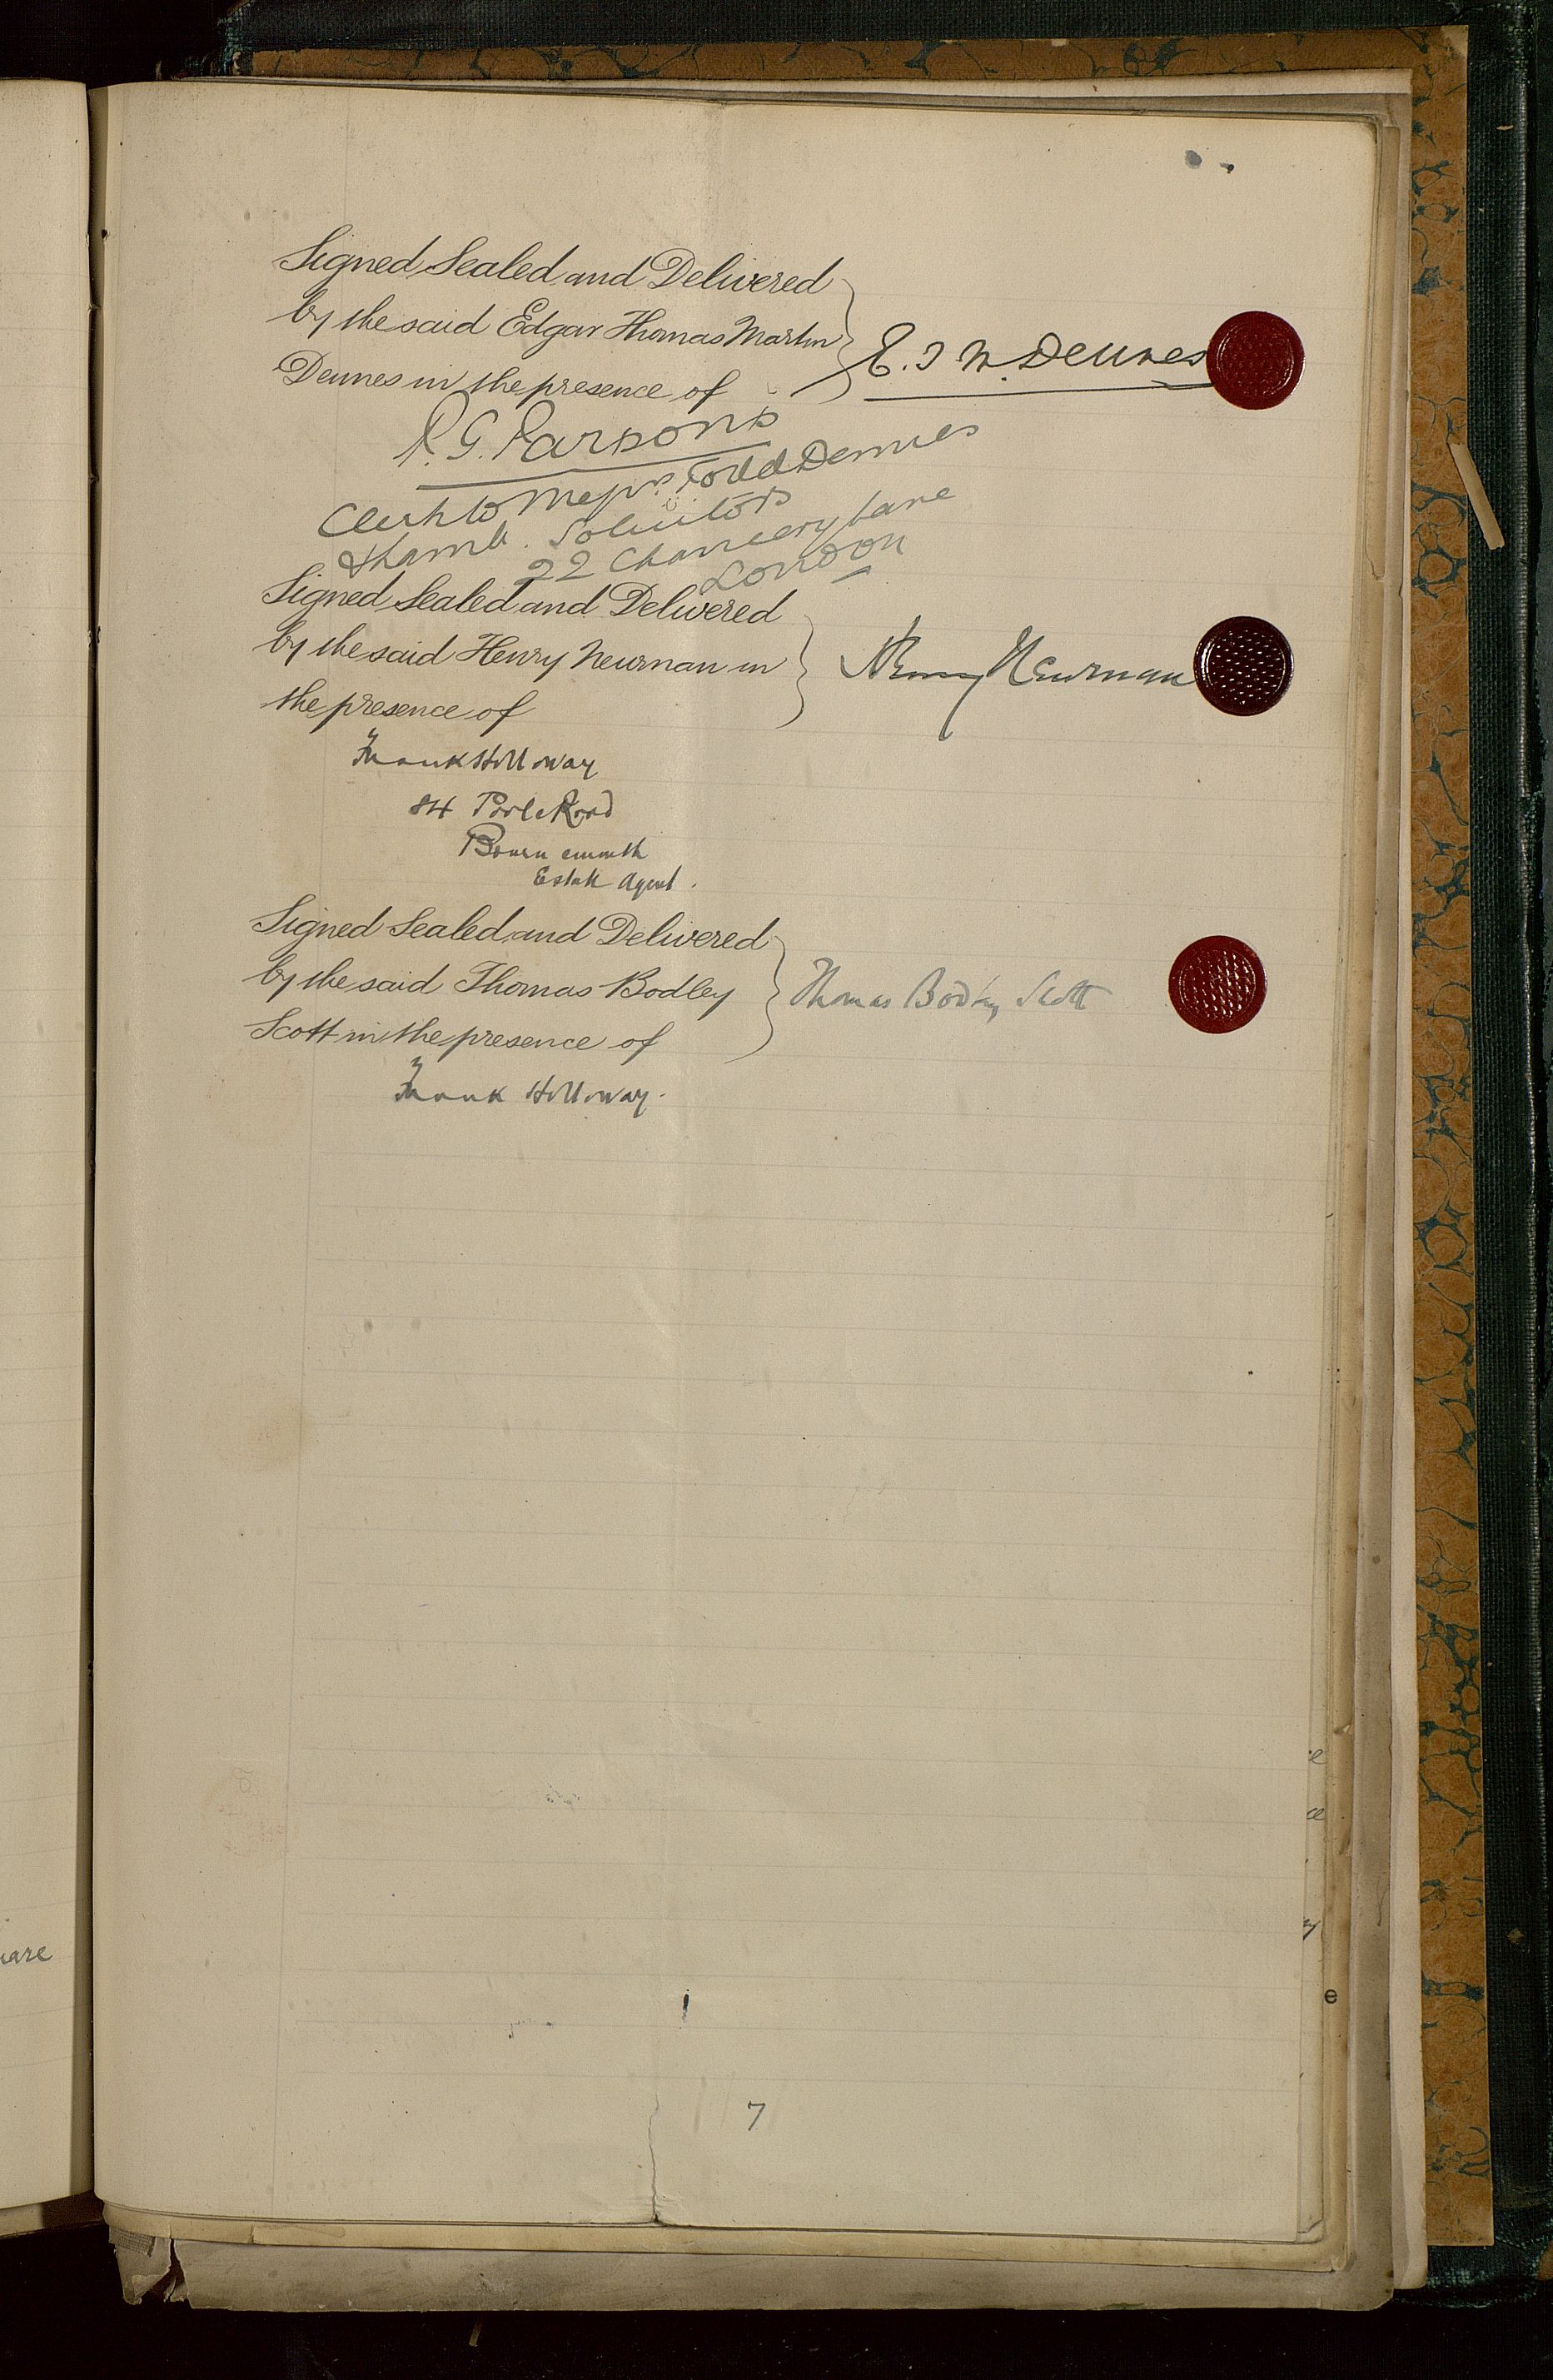 Signed Sealed and Delivered
by the said Edgar Thomas Martin
Dennes in the presence of
E. T. M. Dennes
P. G. Parsons
Clerk to Messrs. Todd Dennes
& Lamb. Solicitors
22 Chancery Lane
London
Signed Sealed and Delivered
by the said Henry Newman in
the presence of
Henry Newman
Frank Holloway
84 Poole Road
Bournemouth
Estate Agent.
Signed Sealed and Delivered
by the said Thomas Bodley
Scott in the presence of
Thomas Bodley Scott
Frank Holloway.
7